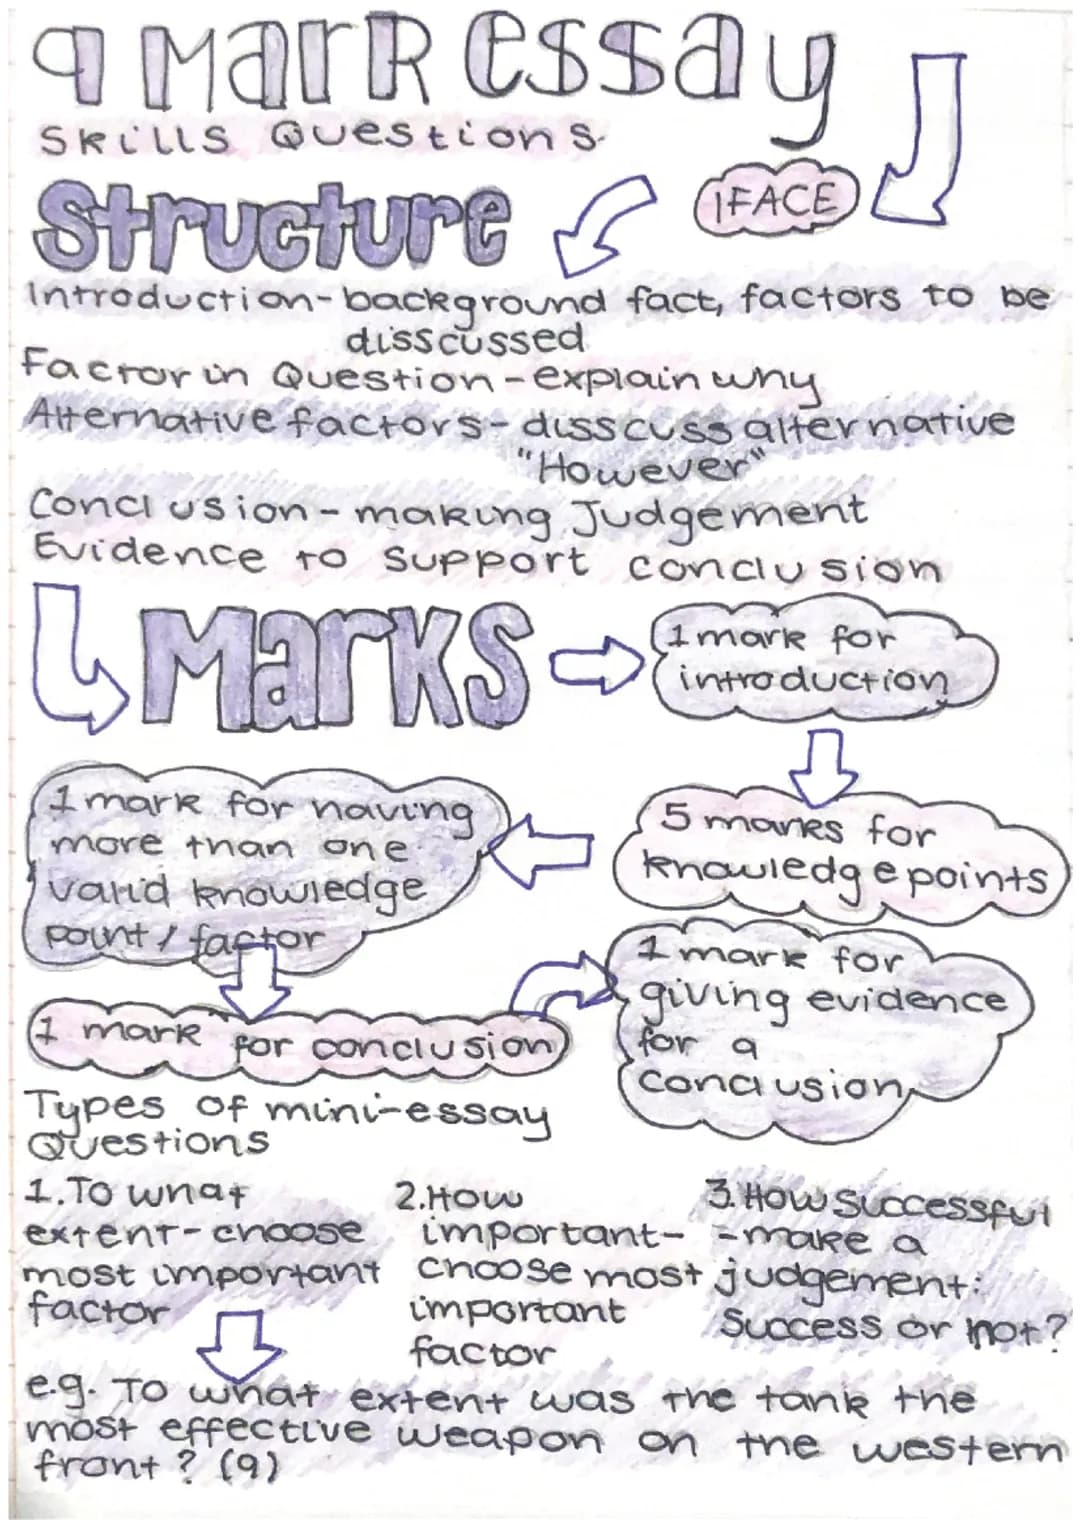 9 Mark essay
Skills Questions
Structure
IFACE
Introduction- background fact, factors to be
disscussed
Factor in Question - explain why
Alternative factors - disscuss alternative
"However"
Conclusion - making Judgement
Evidence to support conclusion
Marks
1 mark for
introduction
5 marks for
knowledge points
1 mark for having
more than one
valid knowledge
point / factor
1 mark for conclusion
1 mark for
giving evidence
for a
conclusion
Types of mini-essay
Questions
1. To what
extent - choose
most important
factor
2. How
important-
choose most
important
factor
3. How Successful
- make a
judgement:
Success or not?
e.g. To what extent was the tank the
most effective weapon on the western
front? (9)